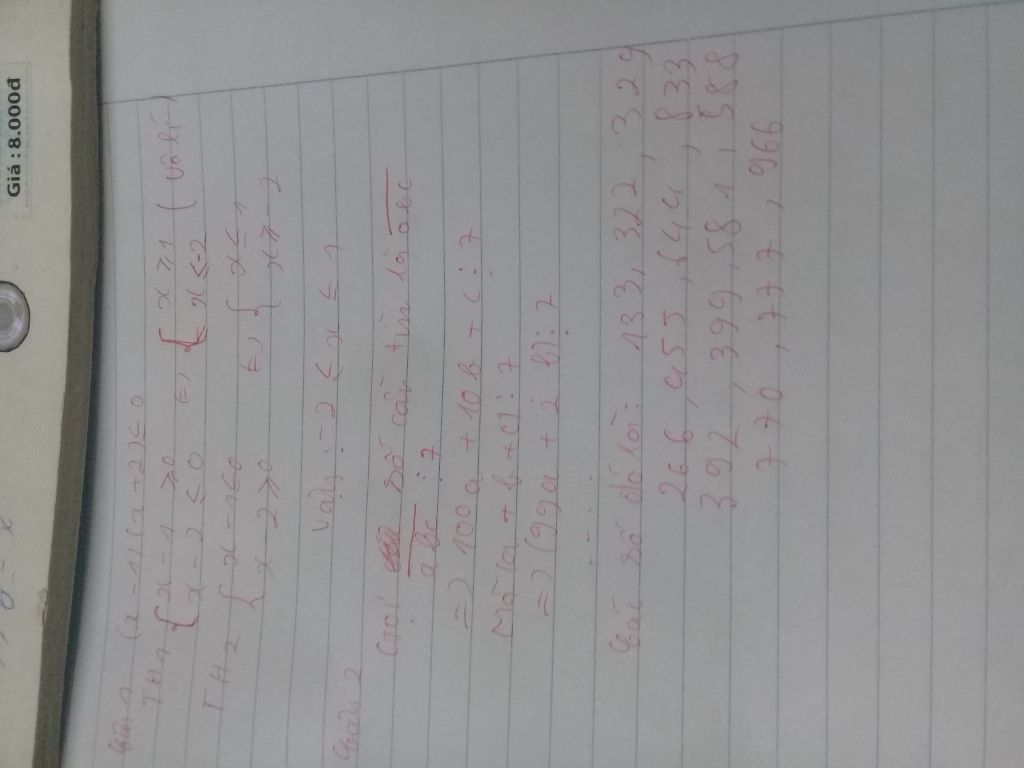 Giá : 8.000đ
Câu 1 (x - 1)(x + 2) ≤ 0
TH1 { x - 1 ≥ 0 <=> { x ≥ 1 (vô lí)
x - 2 ≤ 0 x ≤ -2
TH2 { x - 1 ≤ 0 <=> { x ≤ 1
x - 2 ≥ 0 x ≥ - 2
Vậy : - 2 ≤ x ≤ 1
Câu 2
Gọi số cần tìm là abc
abc ⋮ 7
=> 100a + 10b + c ⋮ 7
Mà (a + b + c) ⋮ 7
=> (99a + 2 b) ⋮ 7
...
Các số đó là: 133, 322, 329
266, 455, 644, 833
392, 399, 581, 588
770, 777, 966